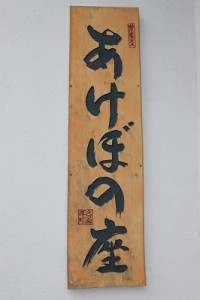 あけぼの座